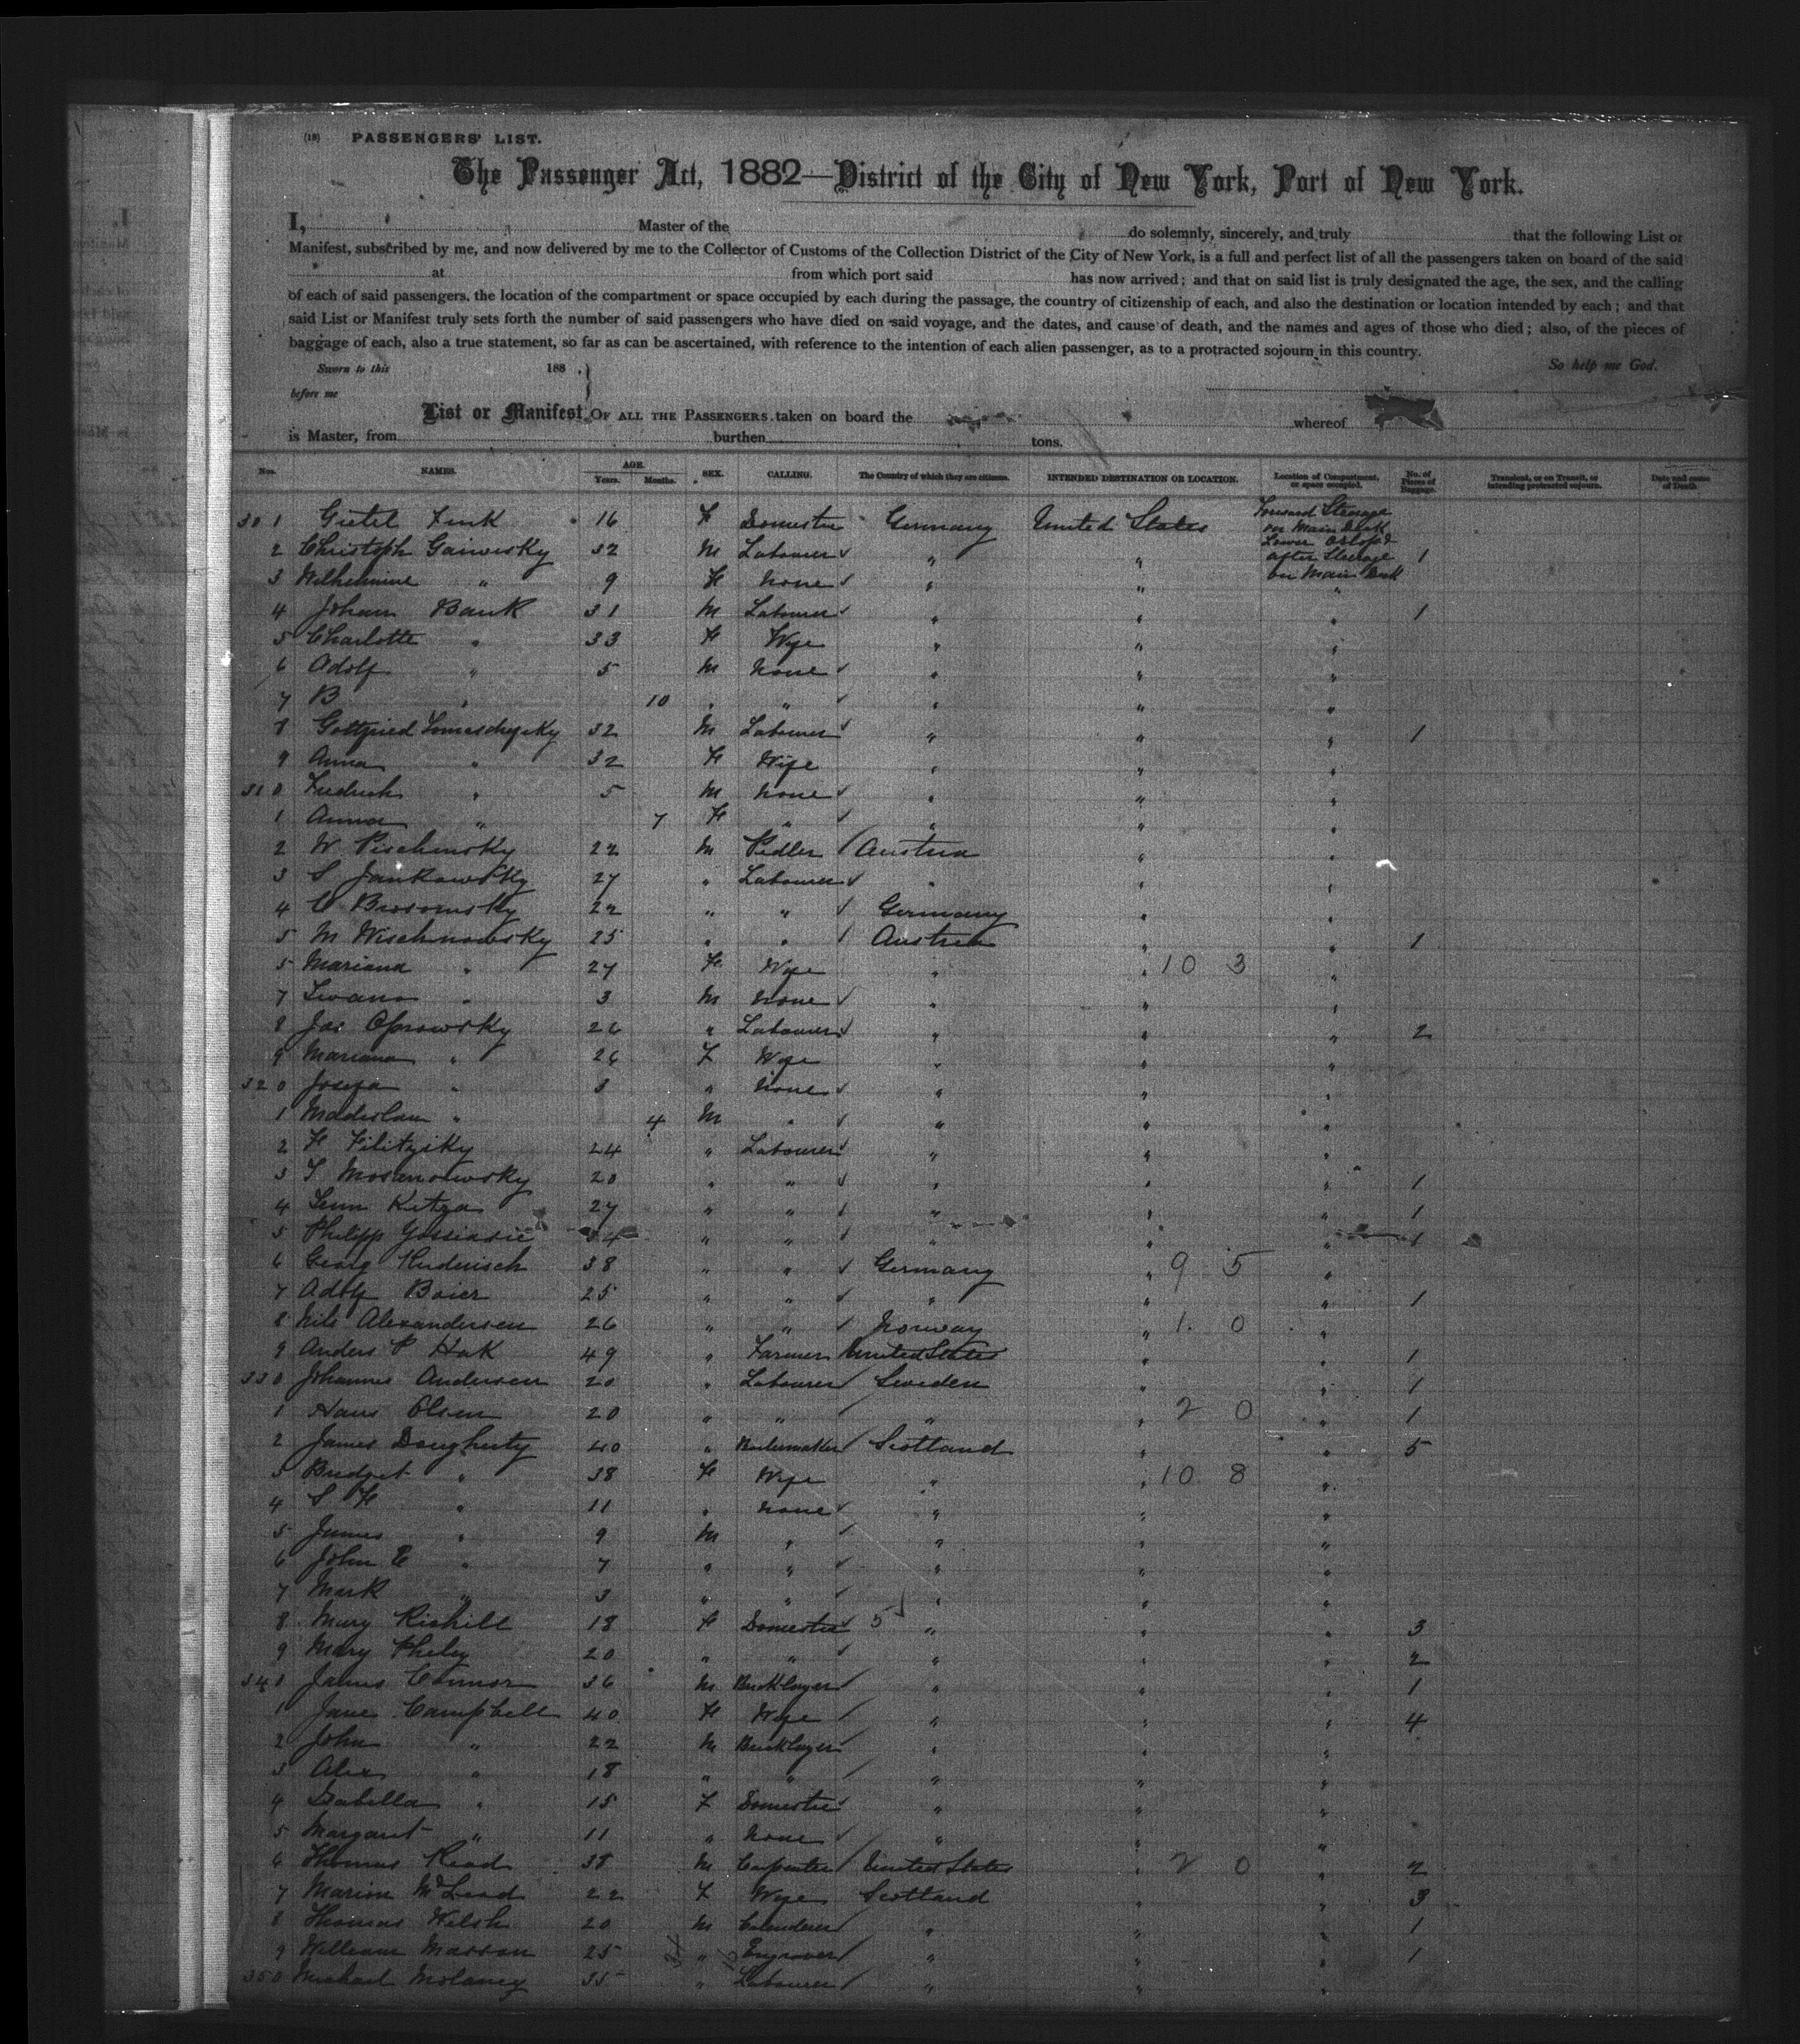 (18) PASSENGERS' LIST.
The Passenger Act, 1882—District of the City of New York, Port of New York.
I, Master of the do solemnly, sincerely, and truly that the following List or
Manifest, subscribed by me, and now delivered by me to the Collector of Customs of the Collection District of the City of New York, is a full and perfect list of all the passengers taken on board of the said
at from which port said has now arrived; and that on said list is truly designated the age, the sex, and the calling
of each of said passengers, the location of the compartment or space occupied by each during the passage, the country of citizenship of each, and also the destination or location intended by each; and that
said List or Manifest truly sets forth the number of said passengers who have died on said voyage, and the dates, and cause of death, and the names and ages of those who died; also, of the pieces of
baggage of each, also a true statement, so far as can be ascertained, with reference to the intention of each alien passenger, as to a protracted sojourn in this country.
Sworn to this 188 . So help me God.
before me
List or Manifest OF ALL THE PASSENGERS taken on board the whereof
is Master, from burthen tons.
Nos. NAMES. AGE. Years. Months. SEX. CALLING. The Country of which they are citizens. INTENDED DESTINATION OR LOCATION. Location of Compartment, or space occupied. No. of Pieces of Baggage. Transient, or on Transit, or intending protracted sojourn. Date and cause of Death.
301 Gietel Fink 16 F Domestic Germany United States Forward Steerage on Main Deck
2 Christoph 32 M Labourer " " Lower Orlop & after Steerage 1
3 Wilhelmine " 9 F None " " on Main Deck "
4 Johann Bank 31 M Labourer " " " 1
5 Charlotte " 33 F Wife " " "
6 Adolf " 5 M None " " "
7 B " 10 " " " " "
8 Gottfried 32 M Labourer " " " 1
9 Anna " 32 F Wife " " "
310 Fredrich " 5 M None " " "
1 Anna " 7 F " " " "
2 W Pischinsky 22 M Pedler Austria " "
3 S Jankowsky 27 " Labourer " " "
4 C Brosomsky 22 " " Germany " "
5 M Wischnowsky 25 " " Austria " " 1
5 Mariana " 27 F Wife " " 10 3 "
7 Iwano " 3 M None " " "
8 Jos Oprowsky 26 " Labourer " " " 2
9 Mariana " 26 F Wife " " "
320 Josefa " 3 " None " " "
1 " 4 M " " " "
2 F Filitzsky 24 " Labourer " " "
3 20 " " " " " 1
4 Ketza 27 " " " " " 1
5 Philipp 34 " " " " " 1
6 Georg 38 " " Germany " 9 5 "
7 Adolf Baier 25 " " " " " 1
8 Nils Alexandersen 26 " " Norway " 1 0 "
9 Anders P Hok 49 " Farmer United States " " 1
330 Johannes Andersen 20 " Labourer Sweden " " 1
1 Hans Olsen 20 " " " " 2 0 " 1
2 James Dougherty 40 " Boilermaker Scotland " " 5
3 Bridget " 38 F Wife " " 10 8 "
4 S F " 11 " None " " "
5 James " 9 M " " " "
6 John E " 7 " " " " "
7 Mark " 3 " " " " "
8 Mary Rishill 18 F Domestic 5 " " " 3
9 Mary Pheley 20 " " " " " 2
340 James Connor 36 M Bricklayer " " " 1
1 Jane Campbell 40 F Wife " " " 4
2 John " 22 M Bricklayer " " "
3 Alex " 18 " " " " "
4 Isabella " 15 F Domestic " " "
5 Margaret " 11 " None " " "
6 Thomas Read 38 M Carpenter United States " 2 0 " 2
7 Marion McLeod 22 F Wife Scotland " " 3
8 Thomas Welsh 20 M Calenderer " " " 1
9 William Masson 25 " Engraver " " " 1
350 Michael Molaney 35 " Labourer " " "